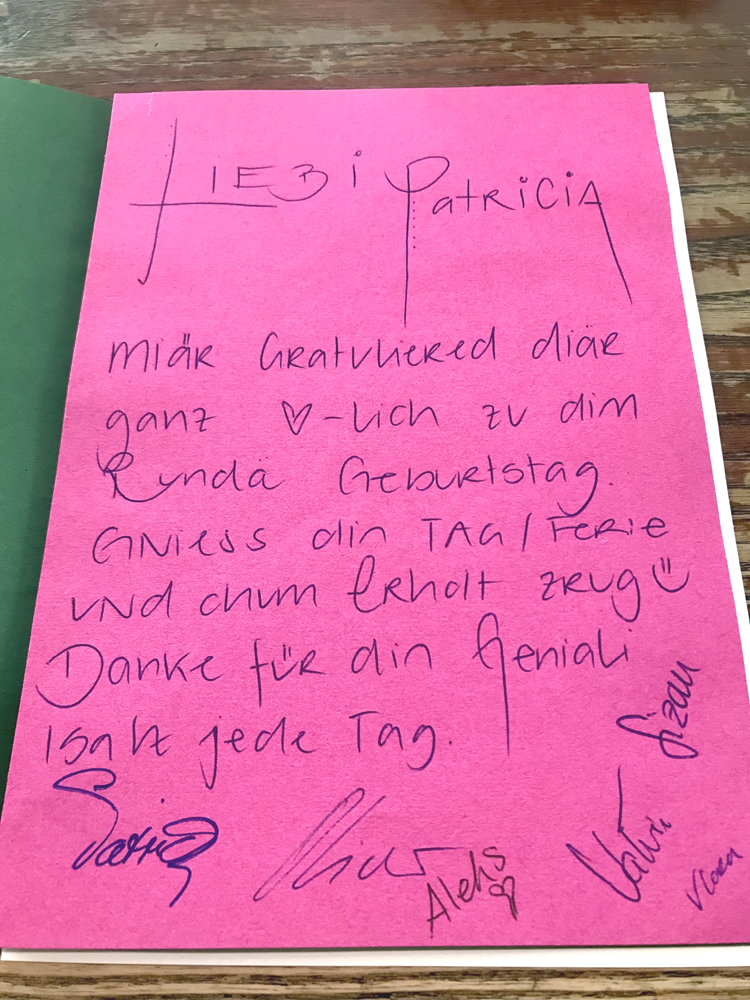 LIEBi PatRiCiA
miär GRatuliered diär
ganz ♡-lich zu dim
Rundä Geburtstag.
GNiess din TAG/FERiE
und chum ERholt zRug ☺
Danke füR din Geniali
isatz jede Tag.
Aleks
Vlora